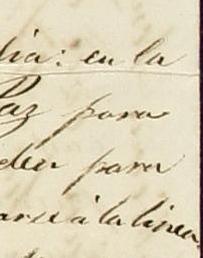 dia: en la
Paz para
der para
arse á la linea